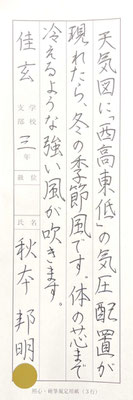 天気図に「西高東低」の気圧配置が
現れたら、冬の季節風です。体の芯まで
冷えるような強い風が吹きます。
学校
支部
佳玄
三年
級位
氏名
秋本邦明